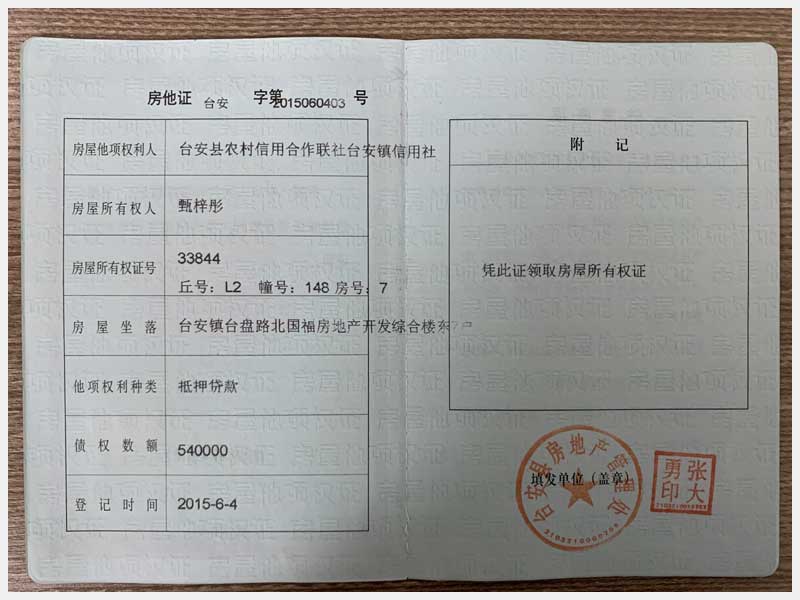 房他证 台安 字第2015060403 号
房屋他项权利人 台安县农村信用合作联社台安镇信用社
房屋所有权人 甄梓彤
房屋所有权证号 33844
丘号：L2 幢号：148 房号：7
房屋坐落 台安镇台盘路北国福房地产开发综合楼东7户
他项权利种类 抵押贷款
债权数额 540000
登记时间 2015-6-4
附 记
凭此证领取房屋所有权证
台安县房地产管理处
填发单位（盖章）
张大勇印